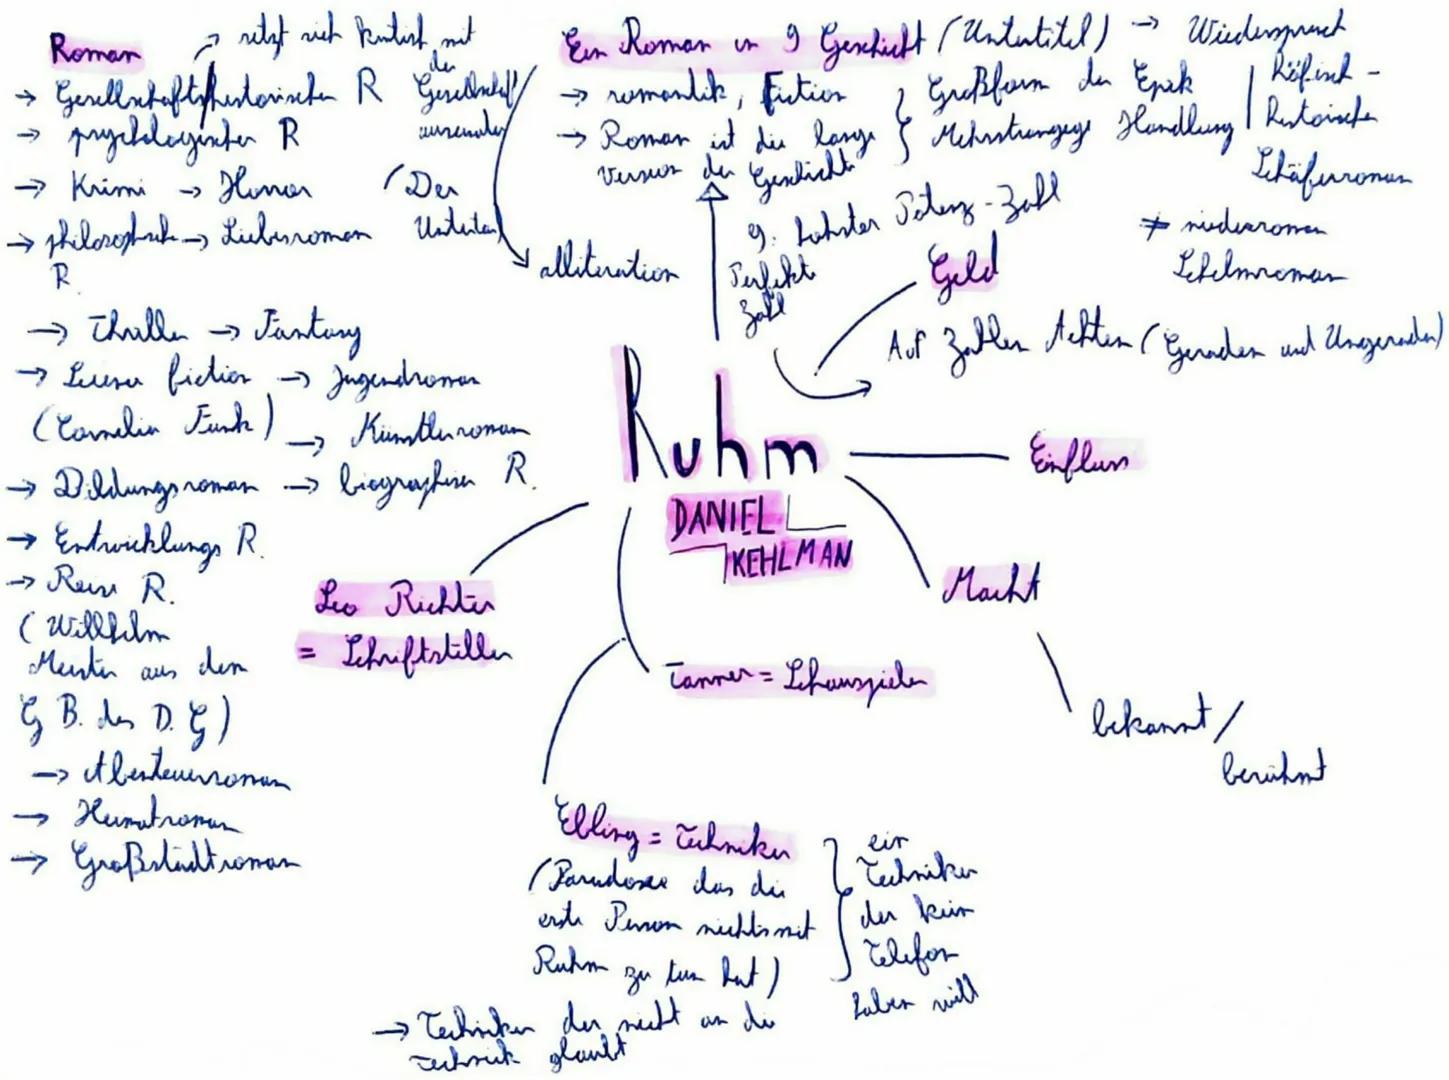 Roman
→ setzt sich kritisch mit
der
Gesellschaft
auseinander
→ Gesellschaftshistorischer R
→ psychologischer R
→ Krimi → Horror (Der
Untertan)
→ philosophische → Liebesroman
R.
→ Thriller → Fantasy
→ Sciene fiction → Jugendroman
(Cornelia Funk) → Künstlerroman
→ Bildungsroman → biographiser R.
→ Entwicklungs R.
→ Reise R.
(Willhelm
Meister aus dem
G B. des D. G)
→ Abenteuerroman
→ Heimatroman
→ Großstadtroman
Ein Roman in 9 Geschicht (Untertitel) → Wiederspruch
→ romantik, Fiction
→ Roman ist die lange
Version der Geschichte
Großform der Epik
Mehrstrangege Handlung
Höfisch-
historische
Schäferroman
≠ niederroman
Schelmroman
alliteration
9. hohster Potenz-Zahl
Perfekte
Zahl
Geld
Auf Zahlen Achten (Geraden und Ungeraden)
Ruhm
DANIEL
KEHLMAN
Einfluss
Macht
bekannt/
berühmt
Leo Richter
= Schriftsteller
Tanner = Schauspieler
Ebling = Techniker
(Paradoxe das die
erste Person nichts mit
Ruhm zu tun hat)
ein
Techniker
der kein
Telefon
haben will
→ Techniker der nicht an die
Technick glaubt